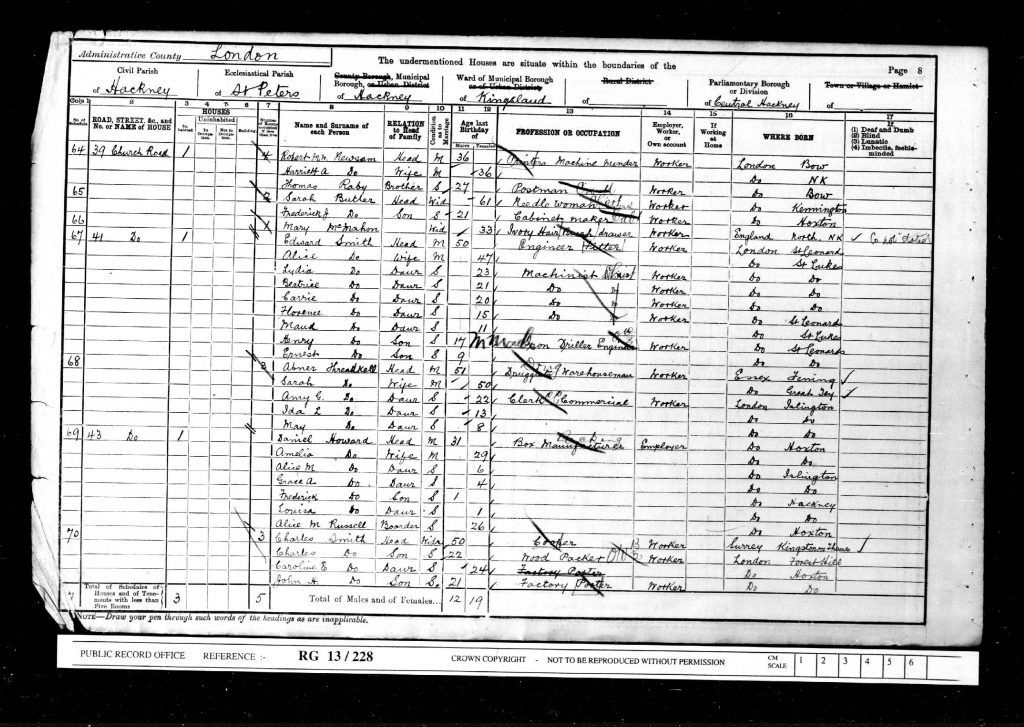 Administrative County London
The undermentioned Houses are situate within the boundaries of the
Page 8
Civil Parish of Hackney
Ecclesiastical Parish of St Peters
County Borough, Municipal Borough, or Urban District of Hackney
Ward of Municipal Borough or of Urban District of Kingsland
Rural District of
Parliamentary Borough or Division of Central Hackney
Town or Village or Hamlet of
Cols 1 2 3 4 5 6 7 8 9 10 11 12 13 14 15 16 17
No. of Schedule
ROAD, STREET, &c., and No. or NAME of HOUSE
HOUSES
Inhabited
Uninhabited
In Occupation
Not in Occupation
Building
Number of Rooms occupied if less than five
Name and Surname of each Person
RELATION to Head of Family
Condition as to Marriage
Age last Birthday of
Males Females
PROFESSION OR OCCUPATION
Employer, Worker, or Own account
If Working at Home
WHERE BORN
If (1) Deaf and Dumb (2) Blind (3) Lunatic (4) Imbecile, feeble-minded
64 39 Church Road 1 4 Robert Newsam Head M 36 Printers Machine Minder Worker London Bow
Harriett A Do Wife M 36 Do NK
Thomas Raby Brother S 27 Postman Worker Do Bow
65 2 Sarah Butler Head Wid 61 Needlewoman Worker Do Kennington
Frederick J Do Son S 21 Cabinet maker Worker Do Hoxton
66 1 Mary McMahon Wid 33 Ivory Hair Brush drawer Worker England North. NK Co not stated
67 41 Do 1 Edward Smith Head M 50 Engineer Fitter Worker London St Leonards
Alice Do Wife M 47 Do St Lukes
Lydia Do Daur S 23 Machinist Worker Do Do
Beatrice Do Daur S 21 Do Worker Do Do
Carrie Do Daur S 20 Do Worker Do Do
Florence Do Daur S 15 Do Worker Do St Leonard
Maud Do Daur S 11 Do St Lukes
Henry Do Son S 17 Iron Driller Engineer Worker Do St Leonards
Ernest Do Son S 9 Do Do
68 Abner Threadkell Head M 51 Druggist Warehouseman Worker Essex Feering
Sarah Do Wife M 50 Do Great Tey
Amy G. Do Daur S 22 Clerk Commercial Worker London Islington
Ida L Do Daur S 13 Do Do
May Do Daur S 8 Do Do
69 43 Do 1 Daniel Howard Head M 31 Box Manufacturer Employer Do Hoxton
Amelia Do Wife M 29 Do Do
Alice M Do Daur S 6 Do Islington
Grace A Do Daur S 4 Do Do
Frederick Do Son S 1 Do Hackney
Louisa Do Daur S 1 Do Do
Alice M Russell Boarder S 26 Do Hoxton
70 3 Charles Smith Head Widr 50 Cooper Worker Surrey Kingston on Thames
Charles Do Son S 22 Wood Packer Worker London Forest Hill
Caroline E Do Daur S 24 Factory Porter Do Hoxton
John H. Do Son S 21 Factory Porter Worker Do Do
7 Total of Schedules of Houses and of Tenements with less than Five Rooms 3 5 Total of Males and of Females... 12 19
NOTE—Draw your pen through such words of the headings as are inapplicable.
PUBLIC RECORD OFFICE REFERENCE :- RG 13 / 228 CROWN COPYRIGHT - NOT TO BE REPRODUCED WITHOUT PERMISSION CM SCALE 1 2 3 4 5 6